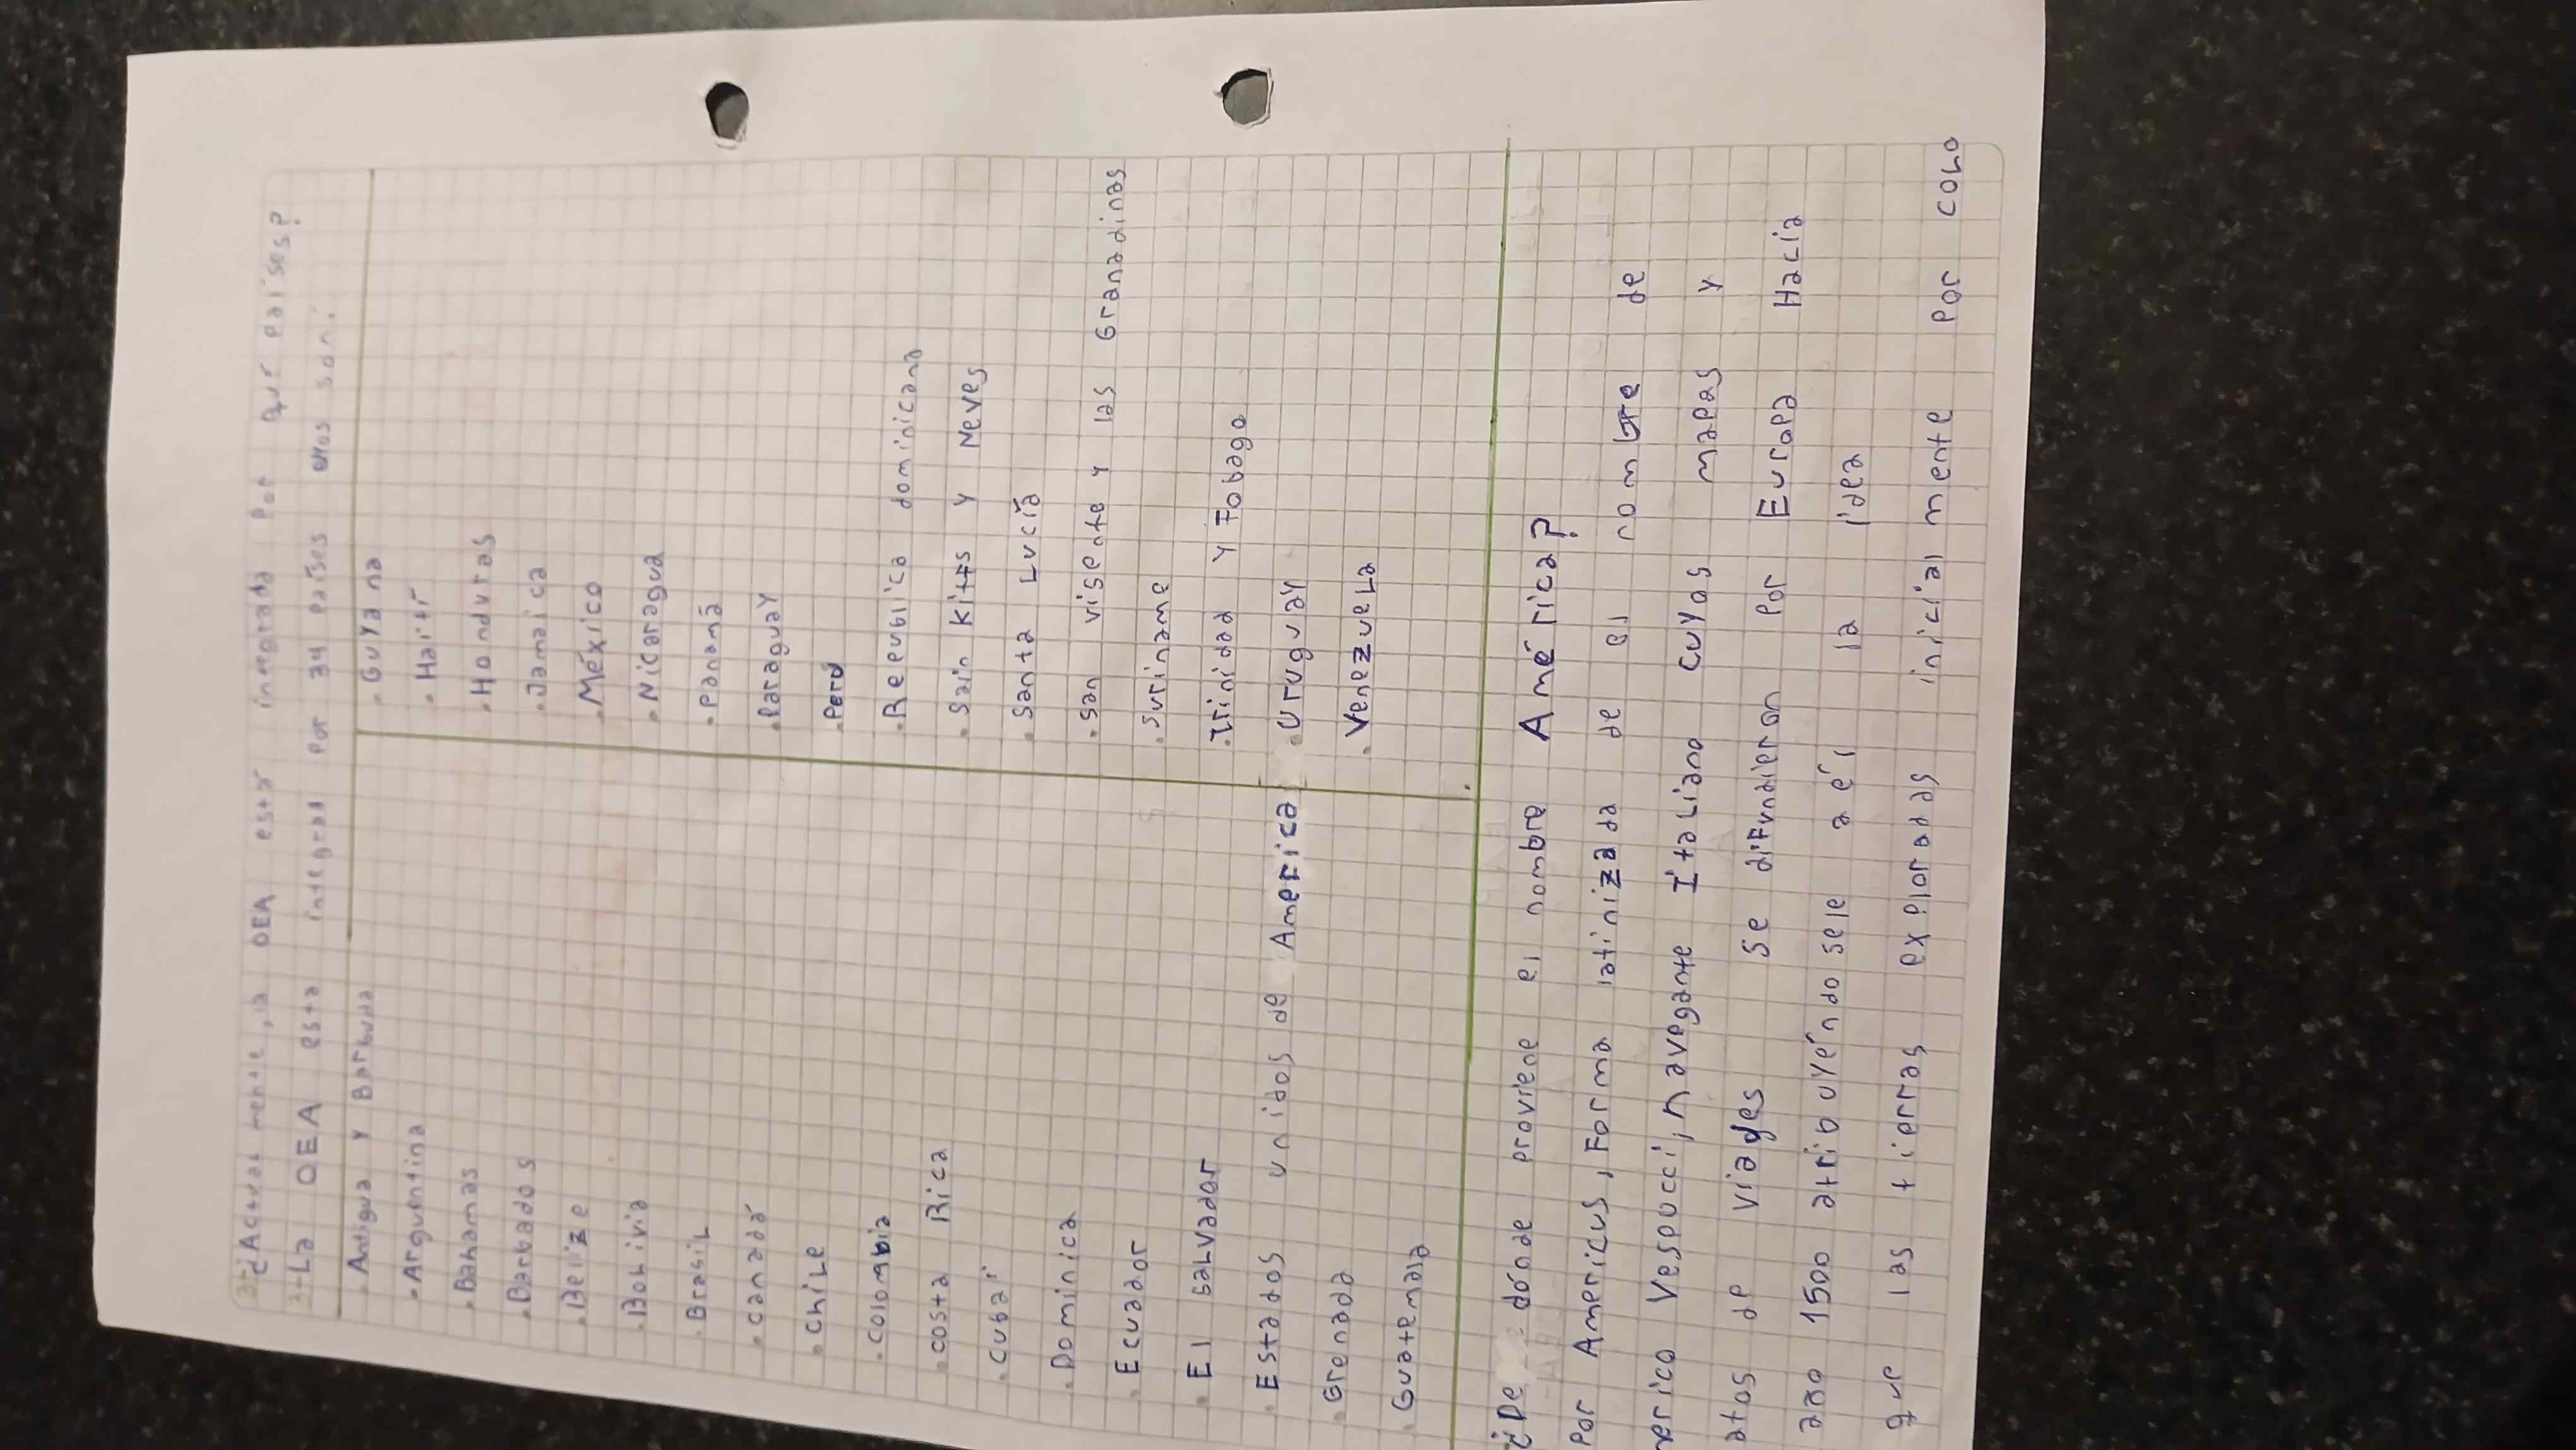 3-¿Actual mente, la OEA está integrada Por que Países?
3-La OEA esta integrad Por 34 países ellos son:
. Antigua y Barbuda
. Arguentina
. Bahamas
. Barbados
. Belize
. BoLivia
. BrasiL
. canadá
. chiLe
. coLombia
. costa Rica
. cuba
. Dominica
. Ecuador
. El saLvador
. Estados unidos de America
. Grenada
. Guatemala
. Guyana
. Haití
. Honduras
. Jamaica
. México
. Nicaragua
. Panamá
. Paraguay
. Perú
. República dominicana
. Sain Kitts y Neves
. Santa Lucía
. san visente y las Granadinas
. surinami
. Trinidad y Tobago
. Uruguay
. VenezueLa
¿De dónde proviene el nombre América?
Por Americus, Forma latinizada de el nombre de
erico Vespucci, navegante ItaLiano cuyos mapas y
atos de viages se difundieron Por Europa Hacia
año 1500 atribuyéndosele a él la idea
que las tierras exploradas inicial mente Por coLo